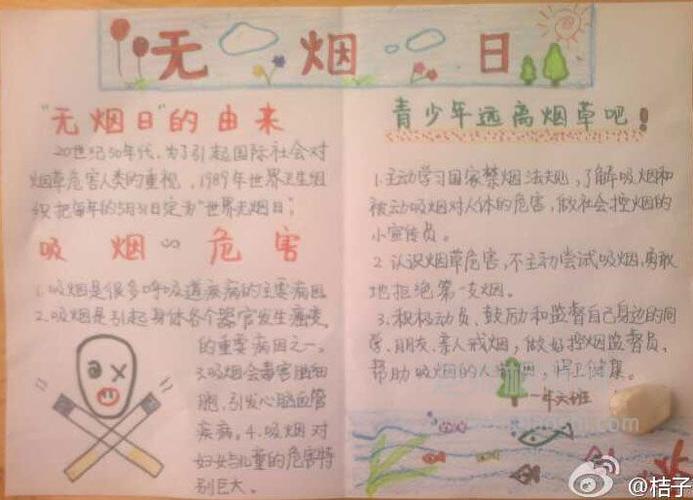 无烟日
"无烟日"的由来
20世纪50年代,为了引起国际社会对
烟草危害人类的重视,1989年世界卫生组
织把每年的5月31日定为"世界无烟日;
吸烟 危害
1.吸烟是很多呼吸道疾病的主要病因
2.吸烟是引起身体各个器官发生癌变
的重要病因之一。
3.吸烟会毒害脑细
胞,引发心脑血管
疾病。4.吸烟对
妇女与儿童的危害特
别巨大。
青少年远离烟草吧!
1.主动学习国家禁烟法规,了解吸烟和
被动吸烟对人体的危害,做社会控烟的
小宣传员。
2.认识烟草危害,不主动尝试吸烟,勇敢
地拒绝第一支烟。
3.积极动员、鼓励和监督自己身边的同
学、朋友、亲人戒烟,做好控烟监督员,
帮助吸烟的人,捍卫健康。
一年六班
@桔子